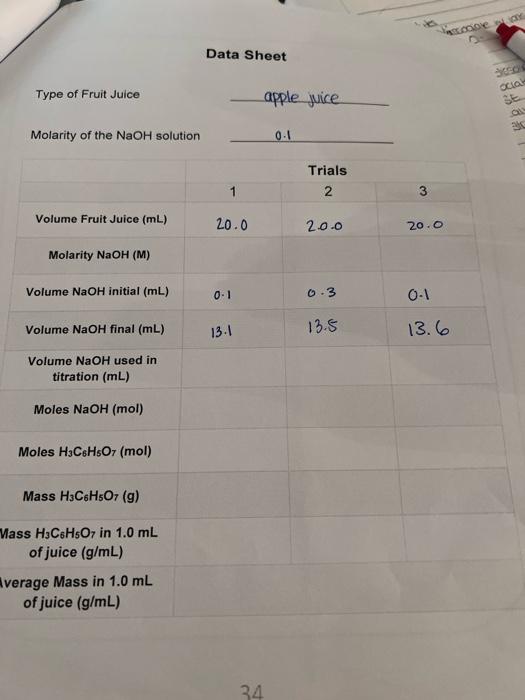 Data Sheet
Type of Fruit Juice apple juice
Molarity of the NaOH solution 0.1
Trials
1 2 3
Volume Fruit Juice (mL) 20.0 20.0 20.0
Molarity NaOH (M)
Volume NaOH initial (mL) 0.1 0.3 0.1
Volume NaOH final (mL) 13.1 13.5 13.6
Volume NaOH used in
titration (mL)
Moles NaOH (mol)
Moles H₃C₆H₅O₇ (mol)
Mass H₃C₆H₅O₇ (g)
Mass H₃C₆H₅O₇ in 1.0 mL
of juice (g/mL)
Average Mass in 1.0 mL
of juice (g/mL)
34